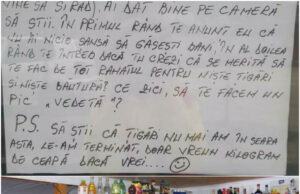 VINE SĂ ȘI RÂZI, AI DAT BINE PE CAMERĂ
SĂ ȘTII. ÎN PRIMUL RÂND TE ANUNT EU CĂ
NU AI NICIO SANSĂ SĂ GĂSEȘTI BANI, ÎN AL DOILEA
RÂND TE ÎNTREB DACĂ TU CREZI CĂ SE MERITĂ SĂ
TE FAC DE TOT RAHATUL PENTRU NIȘTE TIGĂRI
ȘI NIȘTE BĂUTURĂ? CE ZICI, SĂ TE FACEM UN
PIC „VEDETĂ"?
P.S. SĂ ȘTII CĂ TIGĂRI NU MAI AM ÎN SEARA
ASTA, LE-AM TERMINAT, DOAR VREUN KILOGRAM
DE CEAPĂ DACĂ VREI....